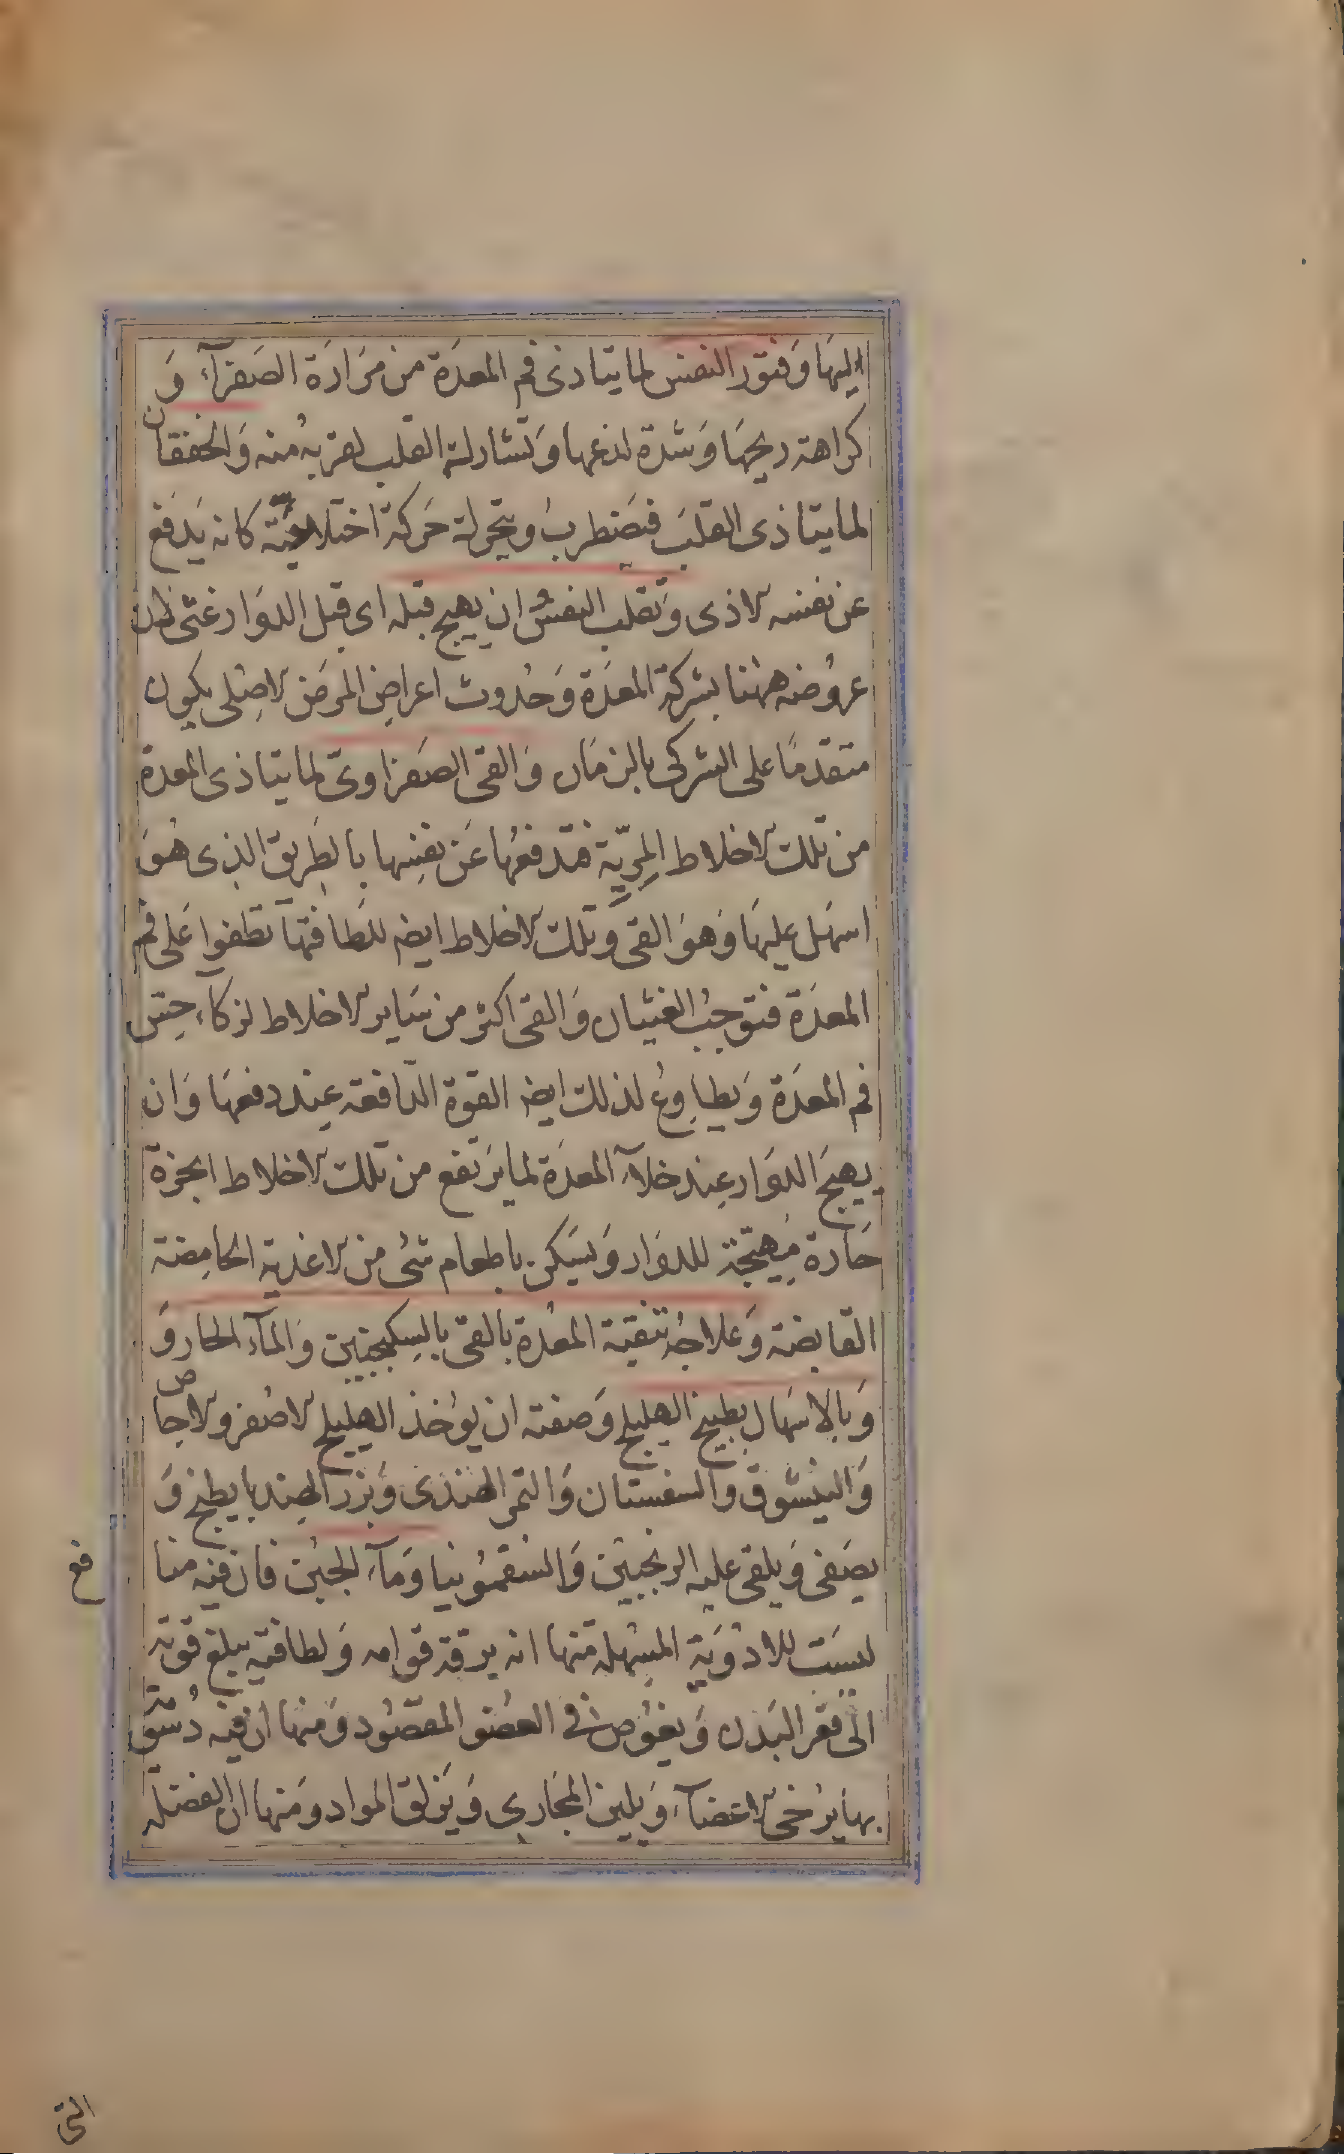 اليهَا وَفتور النفس لما يتاذى فم المعدَة من مَرَارَة الصَفرآء وَ
كراهة ريحهَا وَشدة لذعها وَتشارك القلب لقربهُ منه وَالخفقان
لما يتاذى القلبَ فيَضطربُ ويتحرك حَركة اختلاجيّة كانه يَدفع
عن نفسه الاذى وَتقلب النفسُ ان يهيج قبله اى قبل الدوَار غثى لان
عروُضه ههُنا بشركة المعدَة وَحُدوث اعراضِ المرَض الاصِلى يكون
متقدمًا على الشركى بالزمَان وَالقى الصَفرَاوىّ لما يتاذى المعدة
من تلك الاخلاط المِرِيّة فتدفعُها عَن نفسِها بالطَريق الذى هُوَ
اسهَل عليهَا وَهوَ القى وَتلك الاخلاط ايضه للطَافتها تطفوا عَلى فم
المعدَة فتوجبُ الغثيان وَالقى اكثر من سَاير الاخلاط لزكاء حِسّ
فم المعدَة وَيطاوِعُ لذلك ايضه القوة الدَافعة عِند دفعهَا وَان
يهيجَ الدوَار عِند خلآء المعدَة لما يَرتفع من تلك الاخلاط ابخرة
حَادة مُهيّجة للدوَار وَيسَكن باطعام شئ من الاغذية الحامِضة
القابضة وَعلاجهُ تنقية المعدة بالقى بالسِكنجبين وَالمآء الحار وَ
وَبالاسهَالِ بطبيخ الهليلج وَصفته ان يؤخذ الهليلج الاصفر والاجاص
وَالنيشوق والسفستان وَالتمر الهندى وَبَزر الهندبا يطبخ وَ
يصَفى وَيلقى عليه الرنجبين وَالسقمونيا وَمآء الجبن فان فيه منافع
ليسَت للادْوَيَة المسْهلة منها انه يرقة قوامه وَلطافته يبلغ قوته
الى قعر البَدن وَيغوُص فى العضو المقصُود وَمنها ان فيه دُسومة
بها يُرخى الاعضآء وَيلين المجَارى وَيَزلق المواد وَمنها ان الفضلة
التى